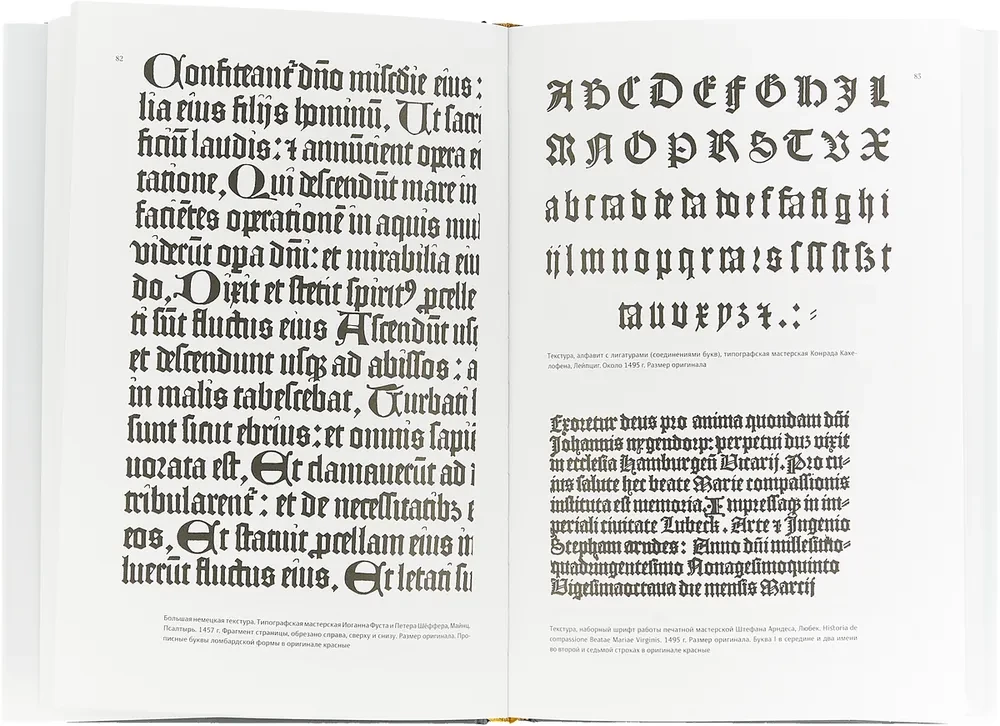 82
Confiteant᷑ dño misc̄die eius :
lia eius filijs hominū, Ut sacri
ficiū laudis : ⁊ annūcient opera ei
tatione, Qui descendūt mare in
faciētes operationē in aquis mul
viderūt opa dñi : et mirabilia eiu
do, Dixit et stetit spiritꝰ ꝓcelle
ti sūt fluctus eius Ascendūt usq
et descendunt usqꝫ ad abissos : a
in malis tabescebat, Turbati s
sunt sicut ebrius : et omnis sapiē
uorata est, Et clamauerūt ad
tribularent᷑ : et de necessitatibꝫ e
eos, Et statuit ꝓcellam eius in
luerūt fluctus eius, Et letati su
Большая немецкая текстура. Типографская мастерская Иоганна Фуста и Петера Шёффера, Майнц.
Псалтырь. 1457 г. Фрагмент страницы, обрезано справа, сверху и снизу. Размер оригинала. Про-
писные буквы ломбардской формы в оригинале красные
83
A B C D E F G H J L
M N O P R S T U V X
a b c ca d de da do e f fa fl g h i
ij l m n o p q r ra ꝛ s ſ ſſ ſt ß t
ta u v x y z ꝫ ⁊ . : ⸗
Текстура, алфавит с лигатурами (соединениями букв), типографская мастерская Конрада Каке-
лофена, Лейпциг. Около 1495 г. Размер оригинала
Exoretur deus pro anima quondam dñi
Johannis nygendorp: perpetui duꝫ vixie
in ecclesia Hamburgeñ Vicarij. Pro cu⸗
ius salute hec beate Marie compassionis
instituta est memoria. Impressaqꝫ in im⸗
periali ciuitate Lubeck. Arte ⁊ Ingenio
Stephani arndes : Anno dñi millesimo⸗
quadringentesimo Nonagesimoquinto
Vigesimaoctaua die mensis Marcij
Текстура, наборный шрифт работы печатной мастерской Штефана Арндеса, Любек. Historia de
compassione Beatae Mariae Virginis. 1495 г. Размер оригинала. Буква I в середине и два имени
во второй и седьмой строках в оригинале красные